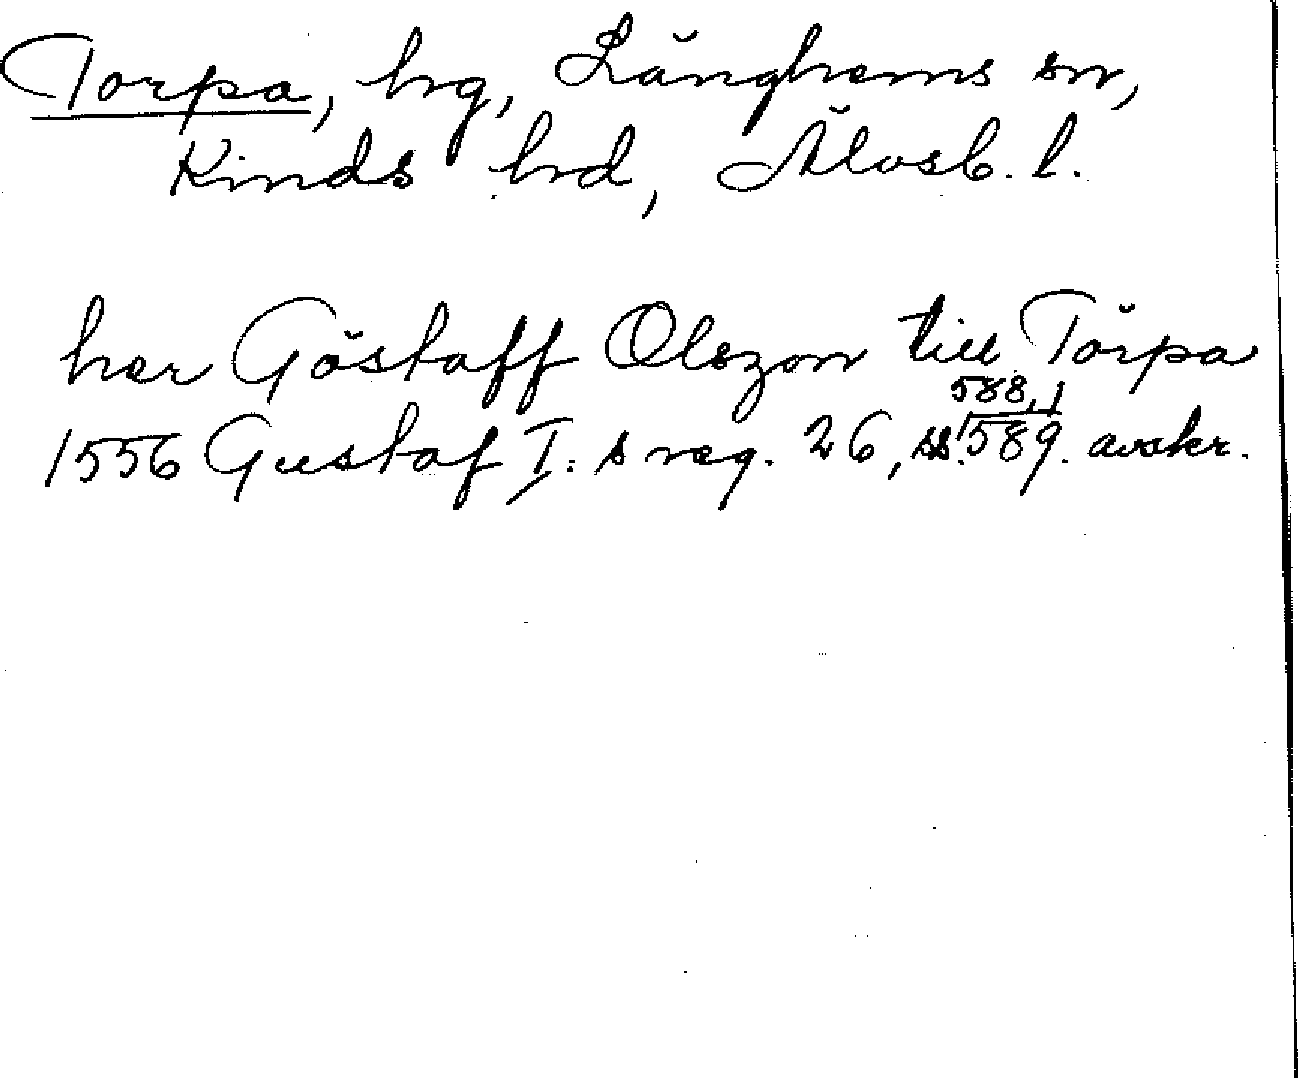 Torpa, hrg, Långhems sn,
Kinds hrd, Älvsb. l.
her Göstaff Olszon till Törpa
1556 Gustaf I: s reg. 26, ss. 588, 589. avskr.